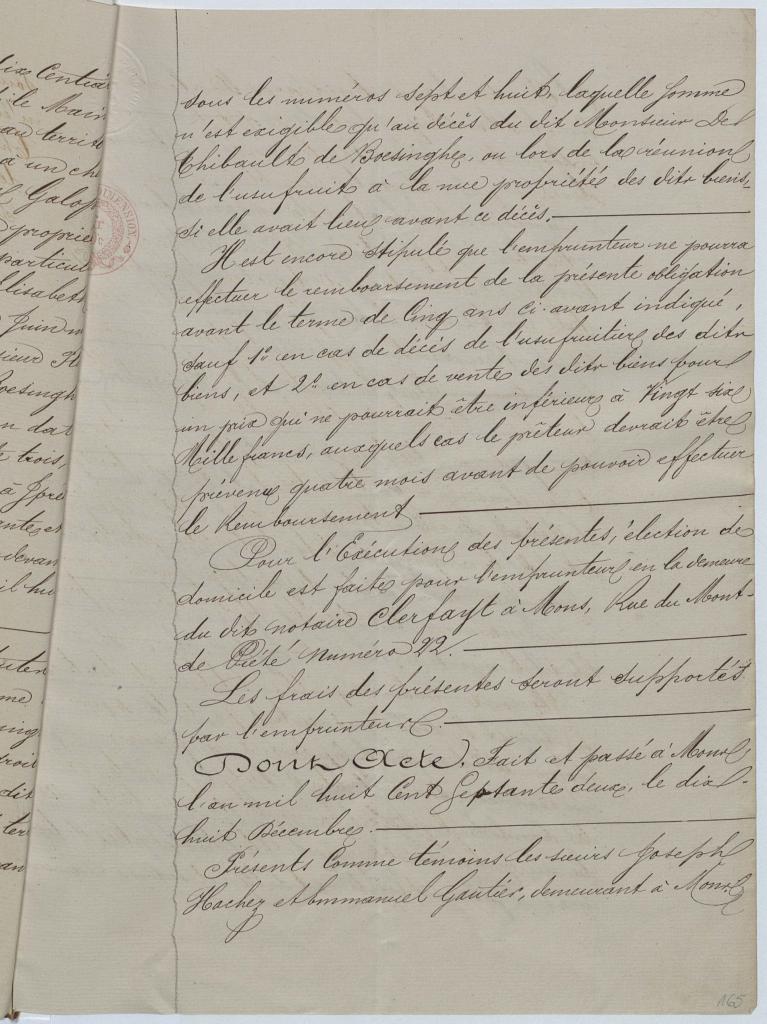 sous les numéros sept et huit, laquelle somme
n'est exigible qu'au décès du dit Monsieur De
Thibault de Boesinghe, ou lors de la réunion
de l'usufruit à la nue propriété des dits biens,
si elle avait lieu avant ce décès.
Il est encore stipulé que l'emprunteur ne pourra
effectuer le remboursement de la présente obligation
avant le terme de Cinq ans ci-avant indiqué,
sauf 1° en cas de décès de l'usufruitier des dits
biens, et 2° en cas de vente des dits biens pour
un prix qui ne pourrait être inférieur à Vingt six
Mille francs, auxquels cas le prêteur devrait être
prévenu quatre mois avant de pouvoir effectuer
le Remboursement
Pour l'Exécution des présentes, élection de
domicile est faite pour l'emprunteur en la demeure
du dit notaire Clerfayt à Mons, Rue du Mont-
de Piété numéro 22.
Les frais des présentes seront supportés
par l'emprunteur.
Dont Acte, Fait et passé à Mons
l'an mil huit Cent Septante deux, le dix-
huit Décembre.
Présents Comme témoins les sieurs Joseph
Hachez et Emmanuel Gautier, demeurant à Mons
165